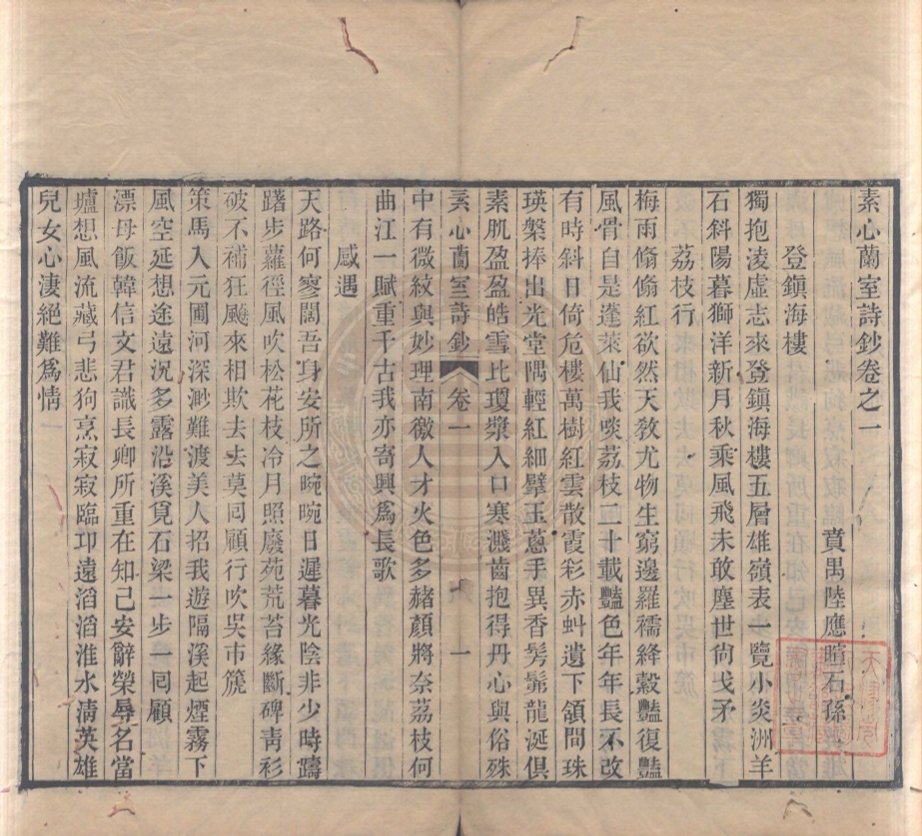 素心蘭室詩鈔卷之一
賁禺陸應暄石孫
登鎮海樓
獨抱凌虛志來登鎮海樓五層雄嶺表一覽小炎洲羊
石斜陽暮獅洋新月秋乘風飛未敢塵世尙戈矛
荔枝行
梅雨翛翛紅欲然天敎尤物生窮邊羅襦絳縠豔復豔
風骨自是蓬萊仙我啖荔枝二十載豔色年年長不改
有時斜日倚危樓萬樹紅雲散霞彩赤虯遺下頷問珠
瑛槃捧出光堂隅輕紅細擘玉蔥手異香髣髴龍涎俱
素肌盈盈皓雪比瓊漿入口寒濺齒抱得丹心與俗殊
素心蘭室詩鈔 卷一 一
中有微紋與妙理南徼人才火色多赭顏將奈荔枝何
曲江一賦重千古我亦寄興爲長歌
感遇
天路何寥闊吾身安所之晼晚日遲暮光陰非少時躊
躇步蘿徑風吹松花枝冷月照廢苑荒苔緣斷碑靑衫
破不補狂颷來相欺去去莫囘顧行吹吳市篪
策馬入元圃河深渺難渡美人招我遊隔溪起煙霧下
風空延想途遠況多露沿溪覓石梁一步一囘顧
漂母飯韓信文君識長卿所重在知己安辭榮辱名當
壚想風流藏弓悲狗烹寂寂臨邛遠滔滔淮水淸英雄
兒女心淒絕難爲情